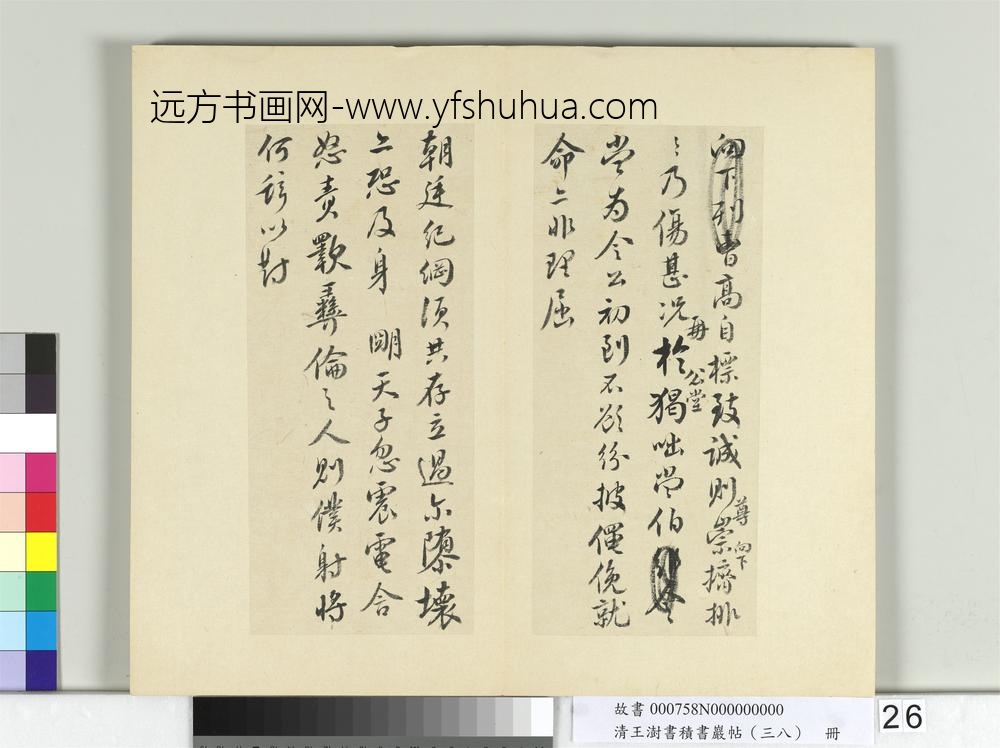 远方书画网-www.yfshuhua.com
向下列曹高自標致誠則尊崇向下擠排
〻乃傷甚况再於公堂猲咄常伯
當為令公初到不欲紛披僶俛就
命亦非理屈
朝廷紀綱須共存立過尔隳壞
亦恐及身 明天子忽震電含
怒責斁彝倫之人則僕射將
何辭以對
故書 000758N000000000
清王澍書積書巖帖（三八） 冊
26